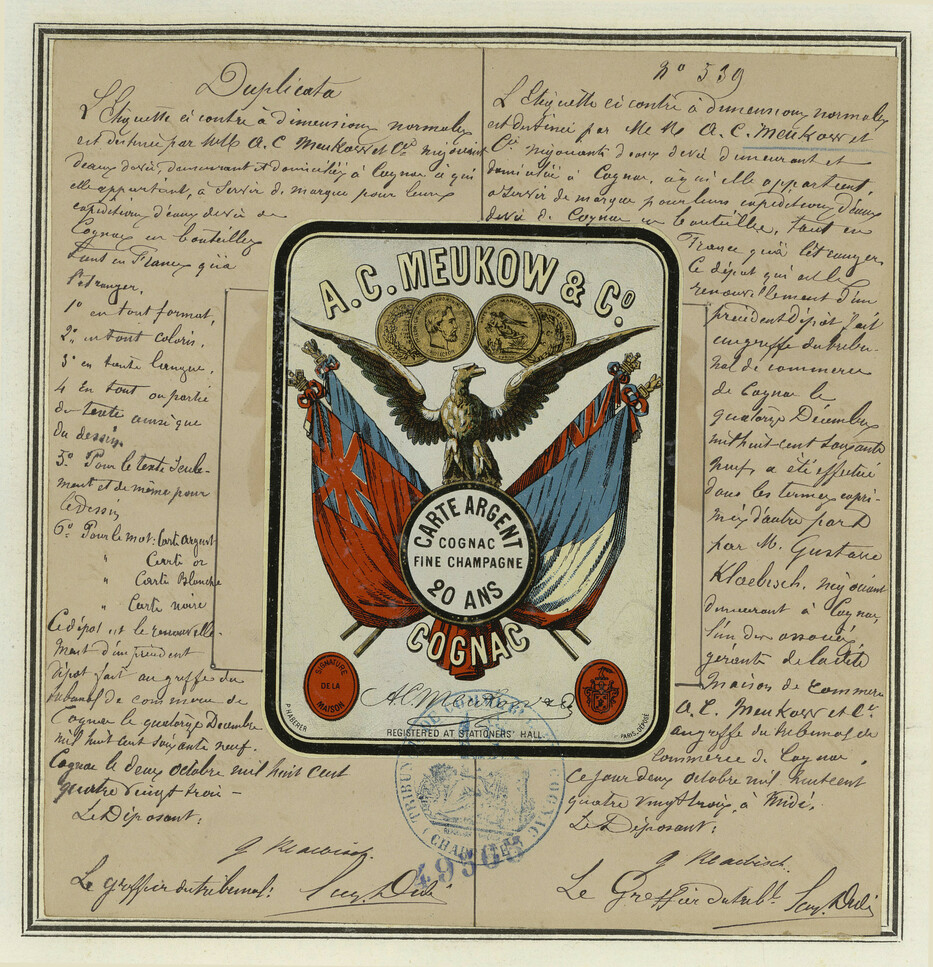 Duplicata
L'Etiquette ci contre à dimensions normales
est destinée par MM A. C. Meukow et Cie négociants
d'eaux devie, demeurant et domiciliés à Cognac a qui
elle appartient, à servir de marque pour leurs
expéditions d'eaux de vie de
Cognac en bouteilles
tant en France qu'à
l'étranger.
1° en tout format,
2° en tout coloris,
3° en toute langue,
4 En tout ou partie
du texte ainsi que
du dessin
5° Pour le texte seule-
ment et de même pour
le Dessin
6° Pour le mot: Carte Argent
" Carte or
" Carte Blanche
" Carte noire
Ce dépôt est le renouvelle-
ment d'un précédent
dépôt fait au greffe du
tribunal de commerce de
Cognac le quatorze Décembre
mil huit cent soixante neuf.
Cognac le deux octobre mil huit cent
quatre vingt trois -
Le Déposant:
G Klaebisch.
Le greffier du tribunal:
N° 539
L'Etiquette ci contre à dimensions normales
est destinée par MM A. C. Meukow et
Cie négociants d'eaux devie demeurant et
domiciliés à Cognac, à qui elle appartient,
a servir de marque pour leurs expéditions d'eaux
devie de Cognac en bouteilles, tant en
France qu'à l'étranger.
Ce dépôt qui est le
renouvellement d'un
précédent dépôt fait
au greffe du tribu-
nal de commerce
de Cognac le
quatorze Décembre
mil huit cent soixante
neuf a été effectué
dans les termes expri-
més d'autre part
par M. Gustave
Klaebisch, négociant
demeurant à Cognac,
l'un des associés
gérants de la dite
Maison de Commerce
A. C. Meukow et Cie
au greffe du tribunal de
Commerce de Cognac,
ce jour deux octobre mil huit cent
quatre vingt trois, à Midi.
Le Déposant:
G Klaebisch.
Le Greffier du tribl.
A.C. MEUKOW & Co.
CARTE ARGENT
COGNAC
FINE CHAMPAGNE
20 ANS
COGNAC
SIGNATURE
DE LA
MAISON
A.C. Meukow & Co
P. HABERER
REGISTERED AT STATIONERS' HALL.
PARIS, DÉPOSÉ
TRIBUNAL DE COMMERCE COGNAC
(CHARENTE)
49505